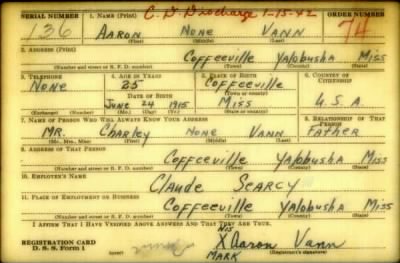 SERIAL NUMBER 1. NAME (Print) C. D. Discharge 1-15-42 ORDER NUMBER
136 AARON NONE VANN 74
(First) (Middle) (Last)
2. ADDRESS (Print)
Coffeeville Yalobusha Miss
(Number and street or R. F. D. number) (Town) (County) (State)
3. TELEPHONE 4. AGE IN YEARS 5. PLACE OF BIRTH 6. COUNTRY OF CITIZENSHIP
NONE 25 Coffeeville
DATE OF BIRTH (Town or county)
JUNE 24 1915 Miss U.S.A.
(Exchange) (Number) (Mo.) (Day) (Yr.) (State or country)
7. NAME OF PERSON WHO WILL ALWAYS KNOW YOUR ADDRESS 8. RELATIONSHIP OF THAT PERSON
MR. Charley NONE VANN FATHER
(Mr., Mrs., Miss) (First) (Middle) (Last)
9. ADDRESS OF THAT PERSON
Coffeeville Yalobusha Miss
(Number and street or R. F. D. number) (Town) (County) (State)
10. EMPLOYER'S NAME
Claude Searcy
11. PLACE OF EMPLOYMENT OR BUSINESS
Coffeeville Yalobusha Miss
(Number and street or R. F. D. number) (Town) (County) (State)
I AFFIRM THAT I HAVE VERIFIED ABOVE ANSWERS AND THAT THEY ARE TRUE.
REGISTRATION CARD HIS
D. S. S. Form 1 X Aaron Vann
MARK (Registrant's signature)